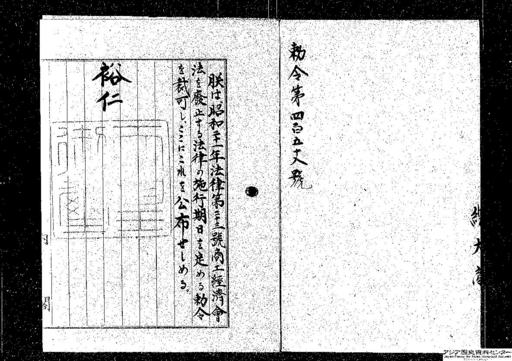 勅令第四百五十八號
朕は昭和二十一年法律第二十三號商工經濟會
法を廢止する法律の施行期日を定める勅令
を裁可し、ここにこれを公布せしめる。
裕仁
内閣
アジア歴史資料センター